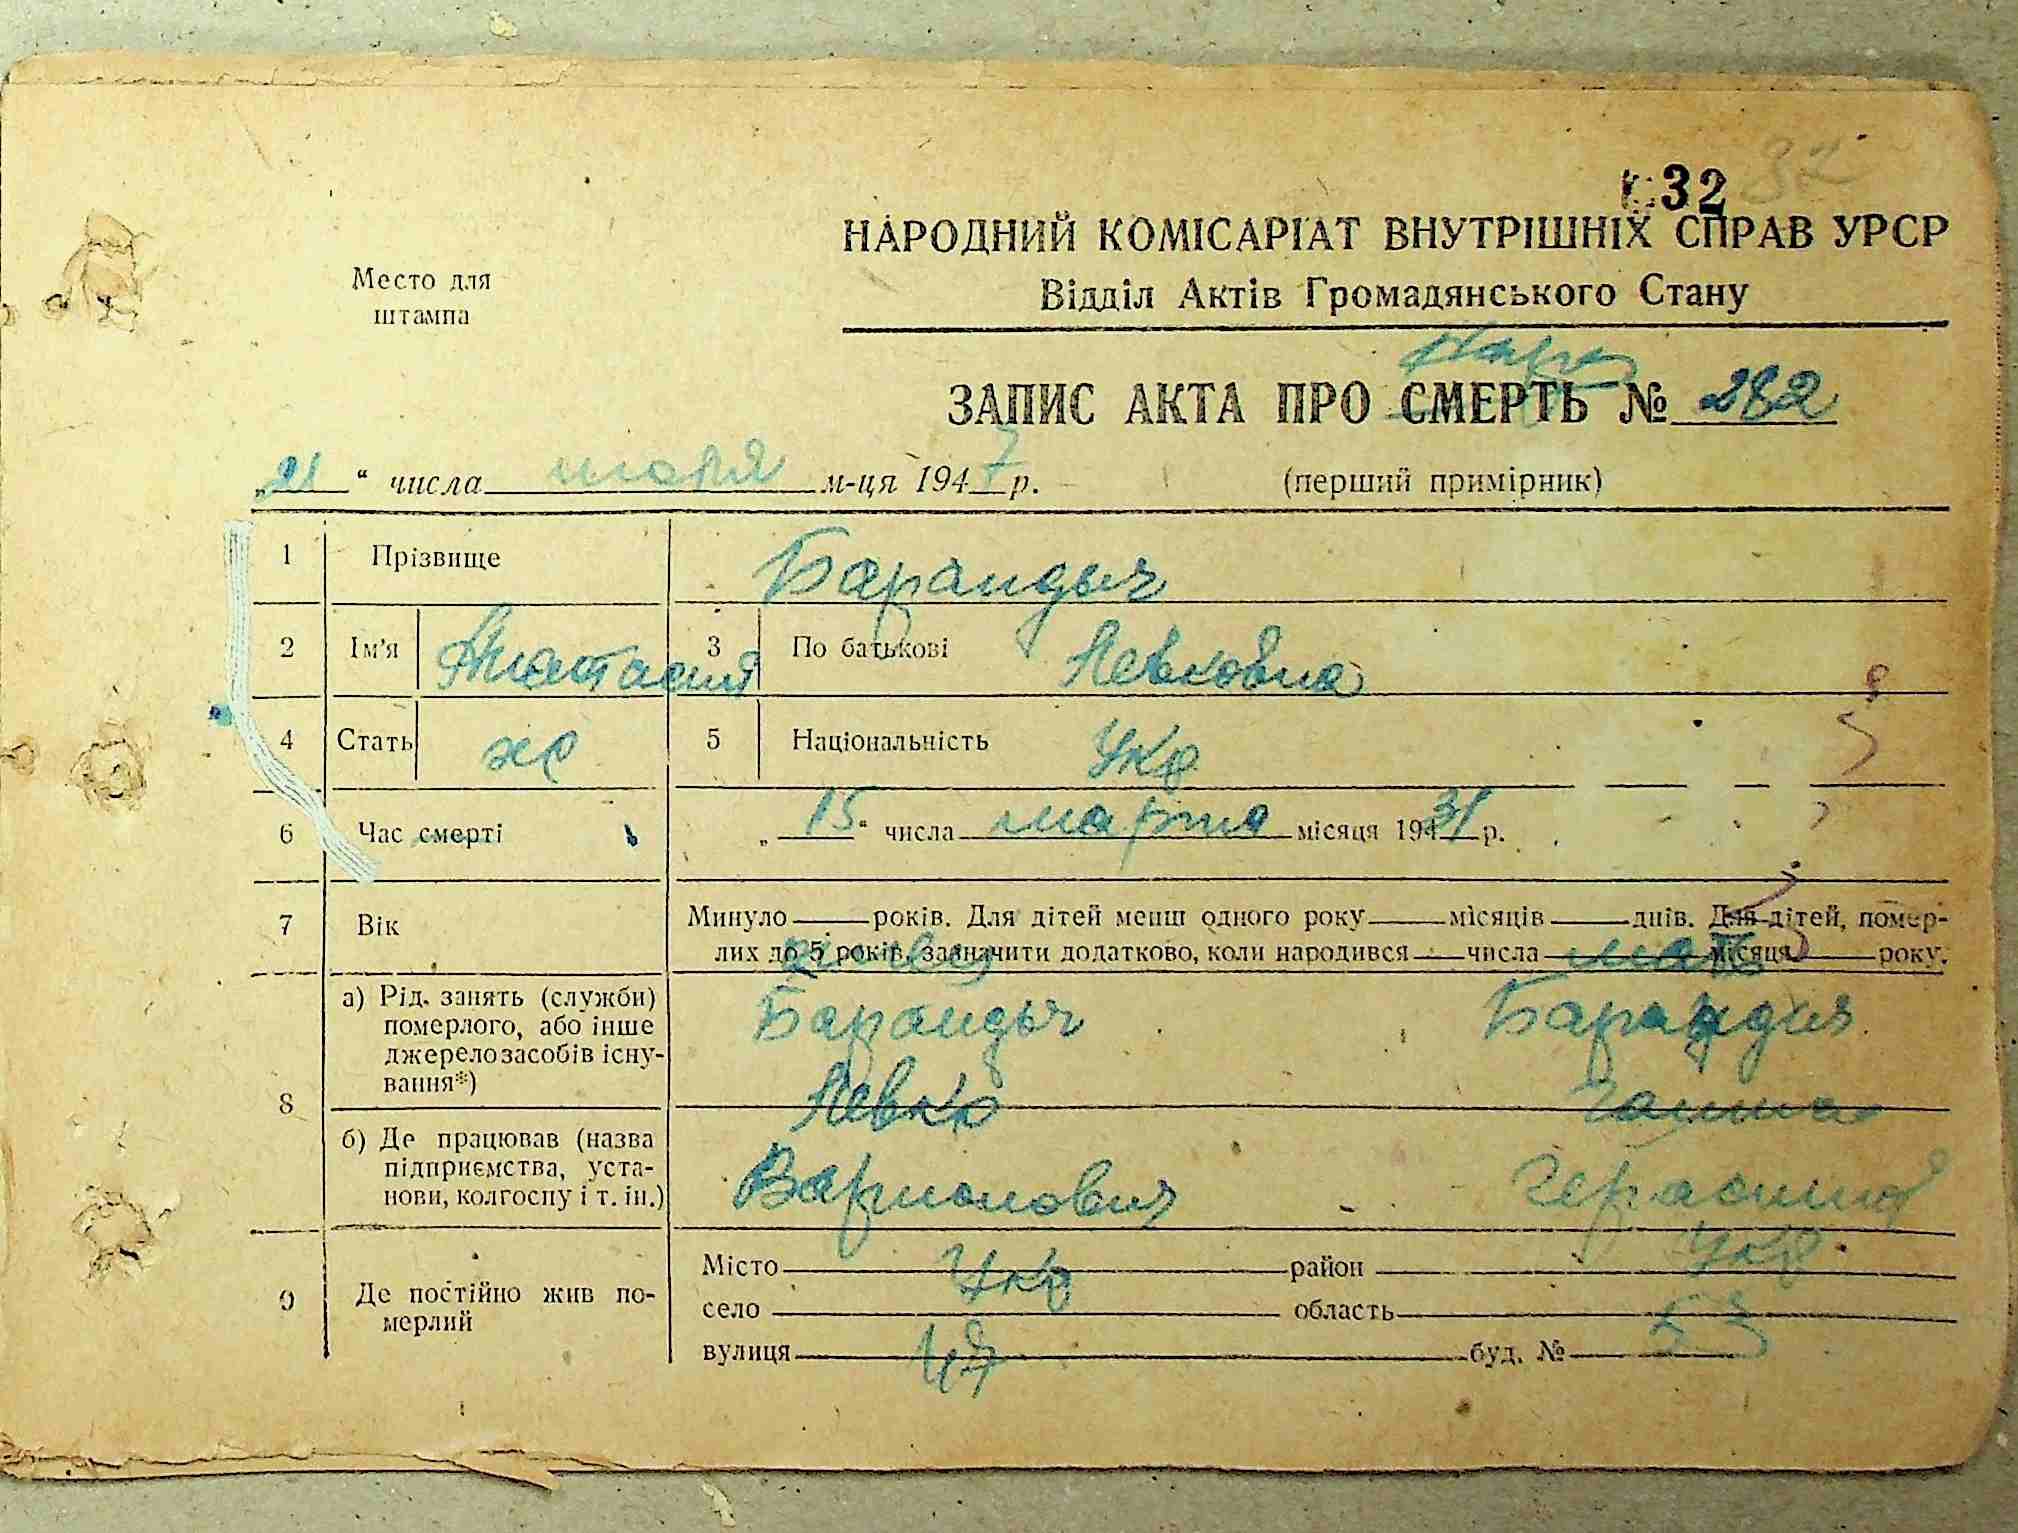 32
НАРОДНИЙ КОМІСАРІАТ ВНУТРІШНІХ СПРАВ УРСР
Место для штампа
Відділ Актів Громадянського Стану
ЗАПИС АКТА ПРО СМЕРТЬ № 282
„21“ числа м-ця 1947 р. (перший примірник)
1 Прізвище Барандыч
2 Ім'я Анастасия 3 По батькові Левковна
4 Стать ж 5 Національність Укр
6 Час смерті „15“ числа марта місяця 1931 р.
7 Вік Минуло років. Для дітей менш одного року місяців днів. Для дітей, помер-
лих до 5 років, зазначити додатково, коли народився числа місяця року.
8 а) Рід занять (служби) померлого, або інше джерело засобів існу-вання*)
Барандыч Барандич
Левко Ганна
б) Де працював (назва підприємства, уста-нови, колгоспу і т. ін.)
Варионович Герасимов
9 Де постійно жив по-мерлий
Місто Укр район Укр
село область
вулиця 47 буд. № 53